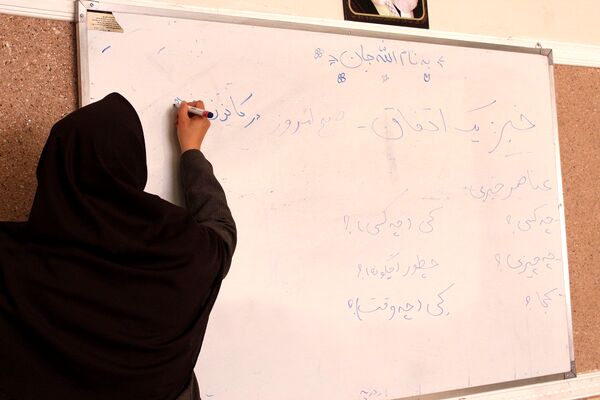 به نام الله جان
خبر: یک اتفاق - صبح امروز در
عناصر خبری
- چه کسی؟ کی (چه کسی)؟
- چه چیزی؟ چطور (چگونه)؟
- کجا؟ کی (چه وقت)؟